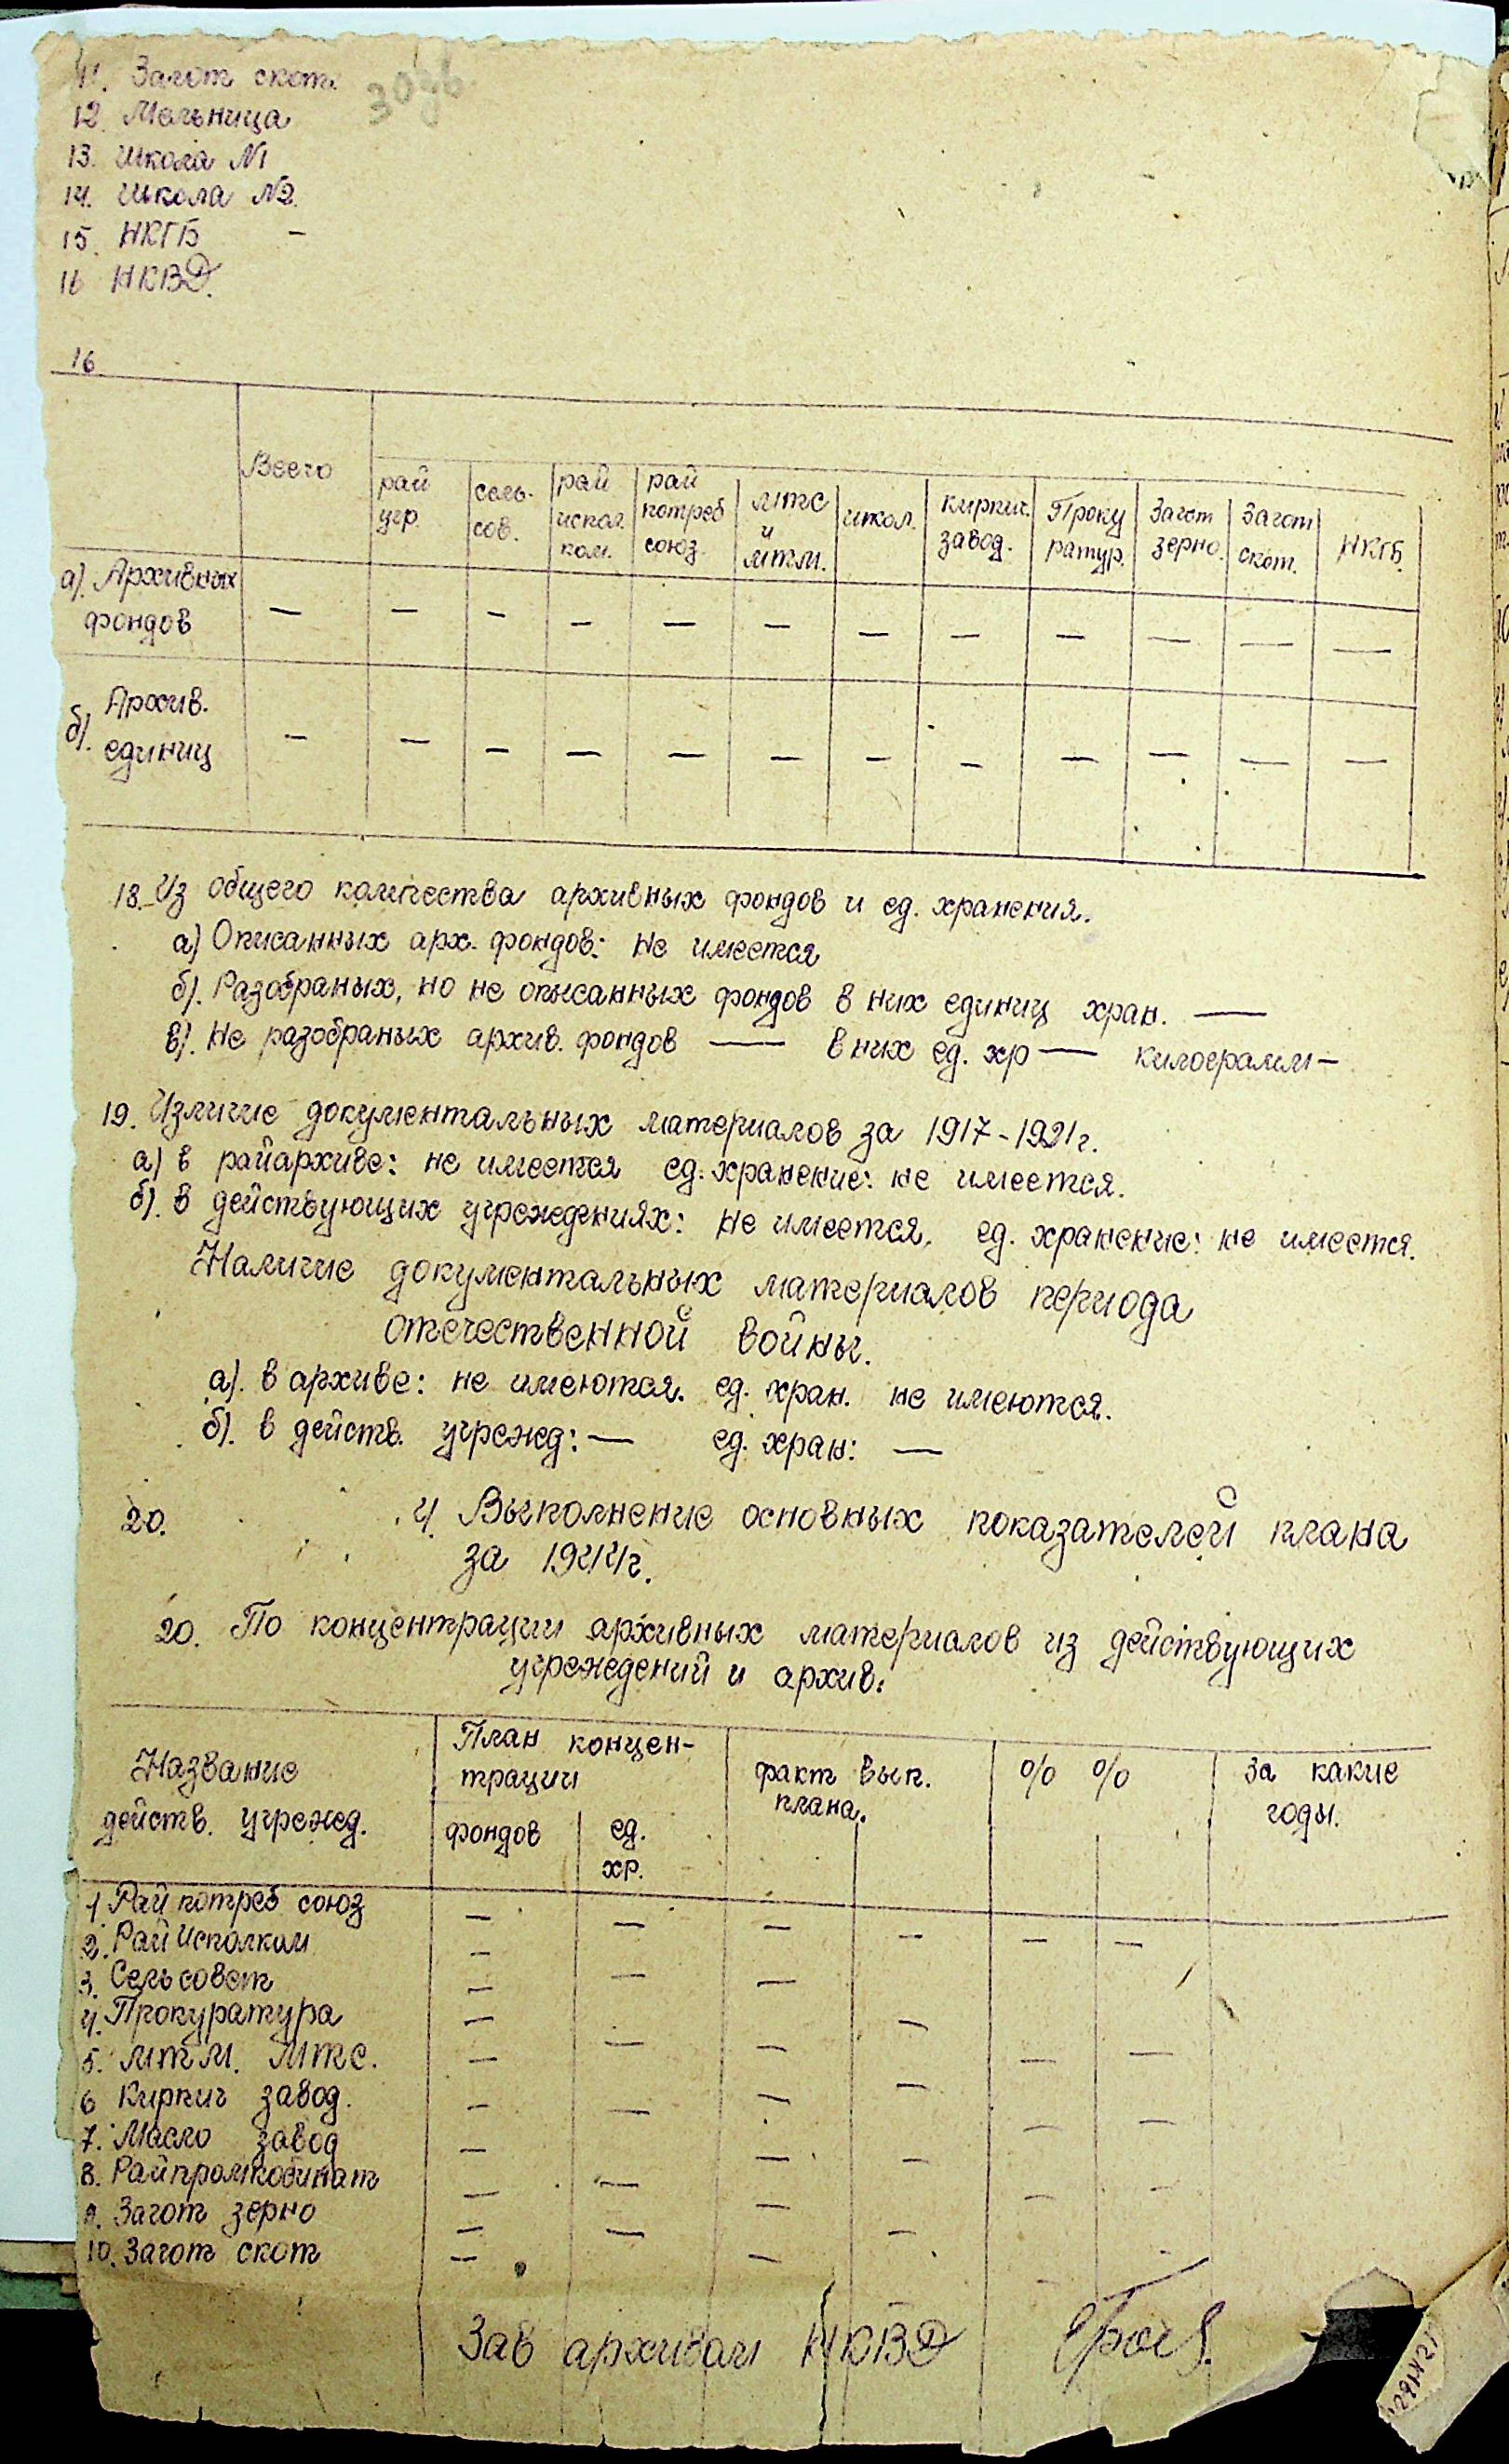 11. Загот скот.
30об.
12. Мельница
13. Школа №1
14. Школа №2.
15. НКГБ –
16 НКВД.
16.
Всего
рай учр.
сель-сов.
рай испол. ком.
рай потреб союз.
мтс и мтм.
школ.
кирпич. завод.
Проку ратур.
Загот зерно.
Загот скот.
НКГБ.
а). Архивных фондов — — — — — — — — — — — —
б). Архив. единиц — — — — — — — — — — — —
18. Из общего количества архивных фондов и ед. хранения.
а) Описанных арх. фондов: не имеется
б). Разобраных, но не описанных фондов в них единиц хран. —
в). Не разобраных архив. фондов — в них ед. хр — килограмм –
19. Изличие документальных материалов за 1917-1921г.
а) в райархиве: не имеется ед. хранение: не имеется.
б). в действующих учреждениях: не имеется. ед. хранение: не имеется.
Наличие документальных материалов периода
отечественной войны.
а). в архиве: не имеются. ед. хран. не имеются.
б). в действ. учрежд: — ед. хран: —
20. 4. Выполнение основных показателей плана
за 1944г.
20. По концентрации архивных материалов из действующих
учреждений и архив:
Название
действ. учрежд.
План концен-
трации
фондов
ед.
хр.
факт вып.
плана.
% %
за какие
годы.
1. Рай потреб союз — — — — — —
2. Рай Исполком —
3. Сельсовет — — —
4. Прокуратура — —
5. мтм. мтс. — — — — —
6 Кирпич завод. — — — —
7. Масло завод — — — — —
8. Райпромкобинат — — — — —
9. Загот зерно — — —
10. Загот скот — —
Зав архивом НКВД